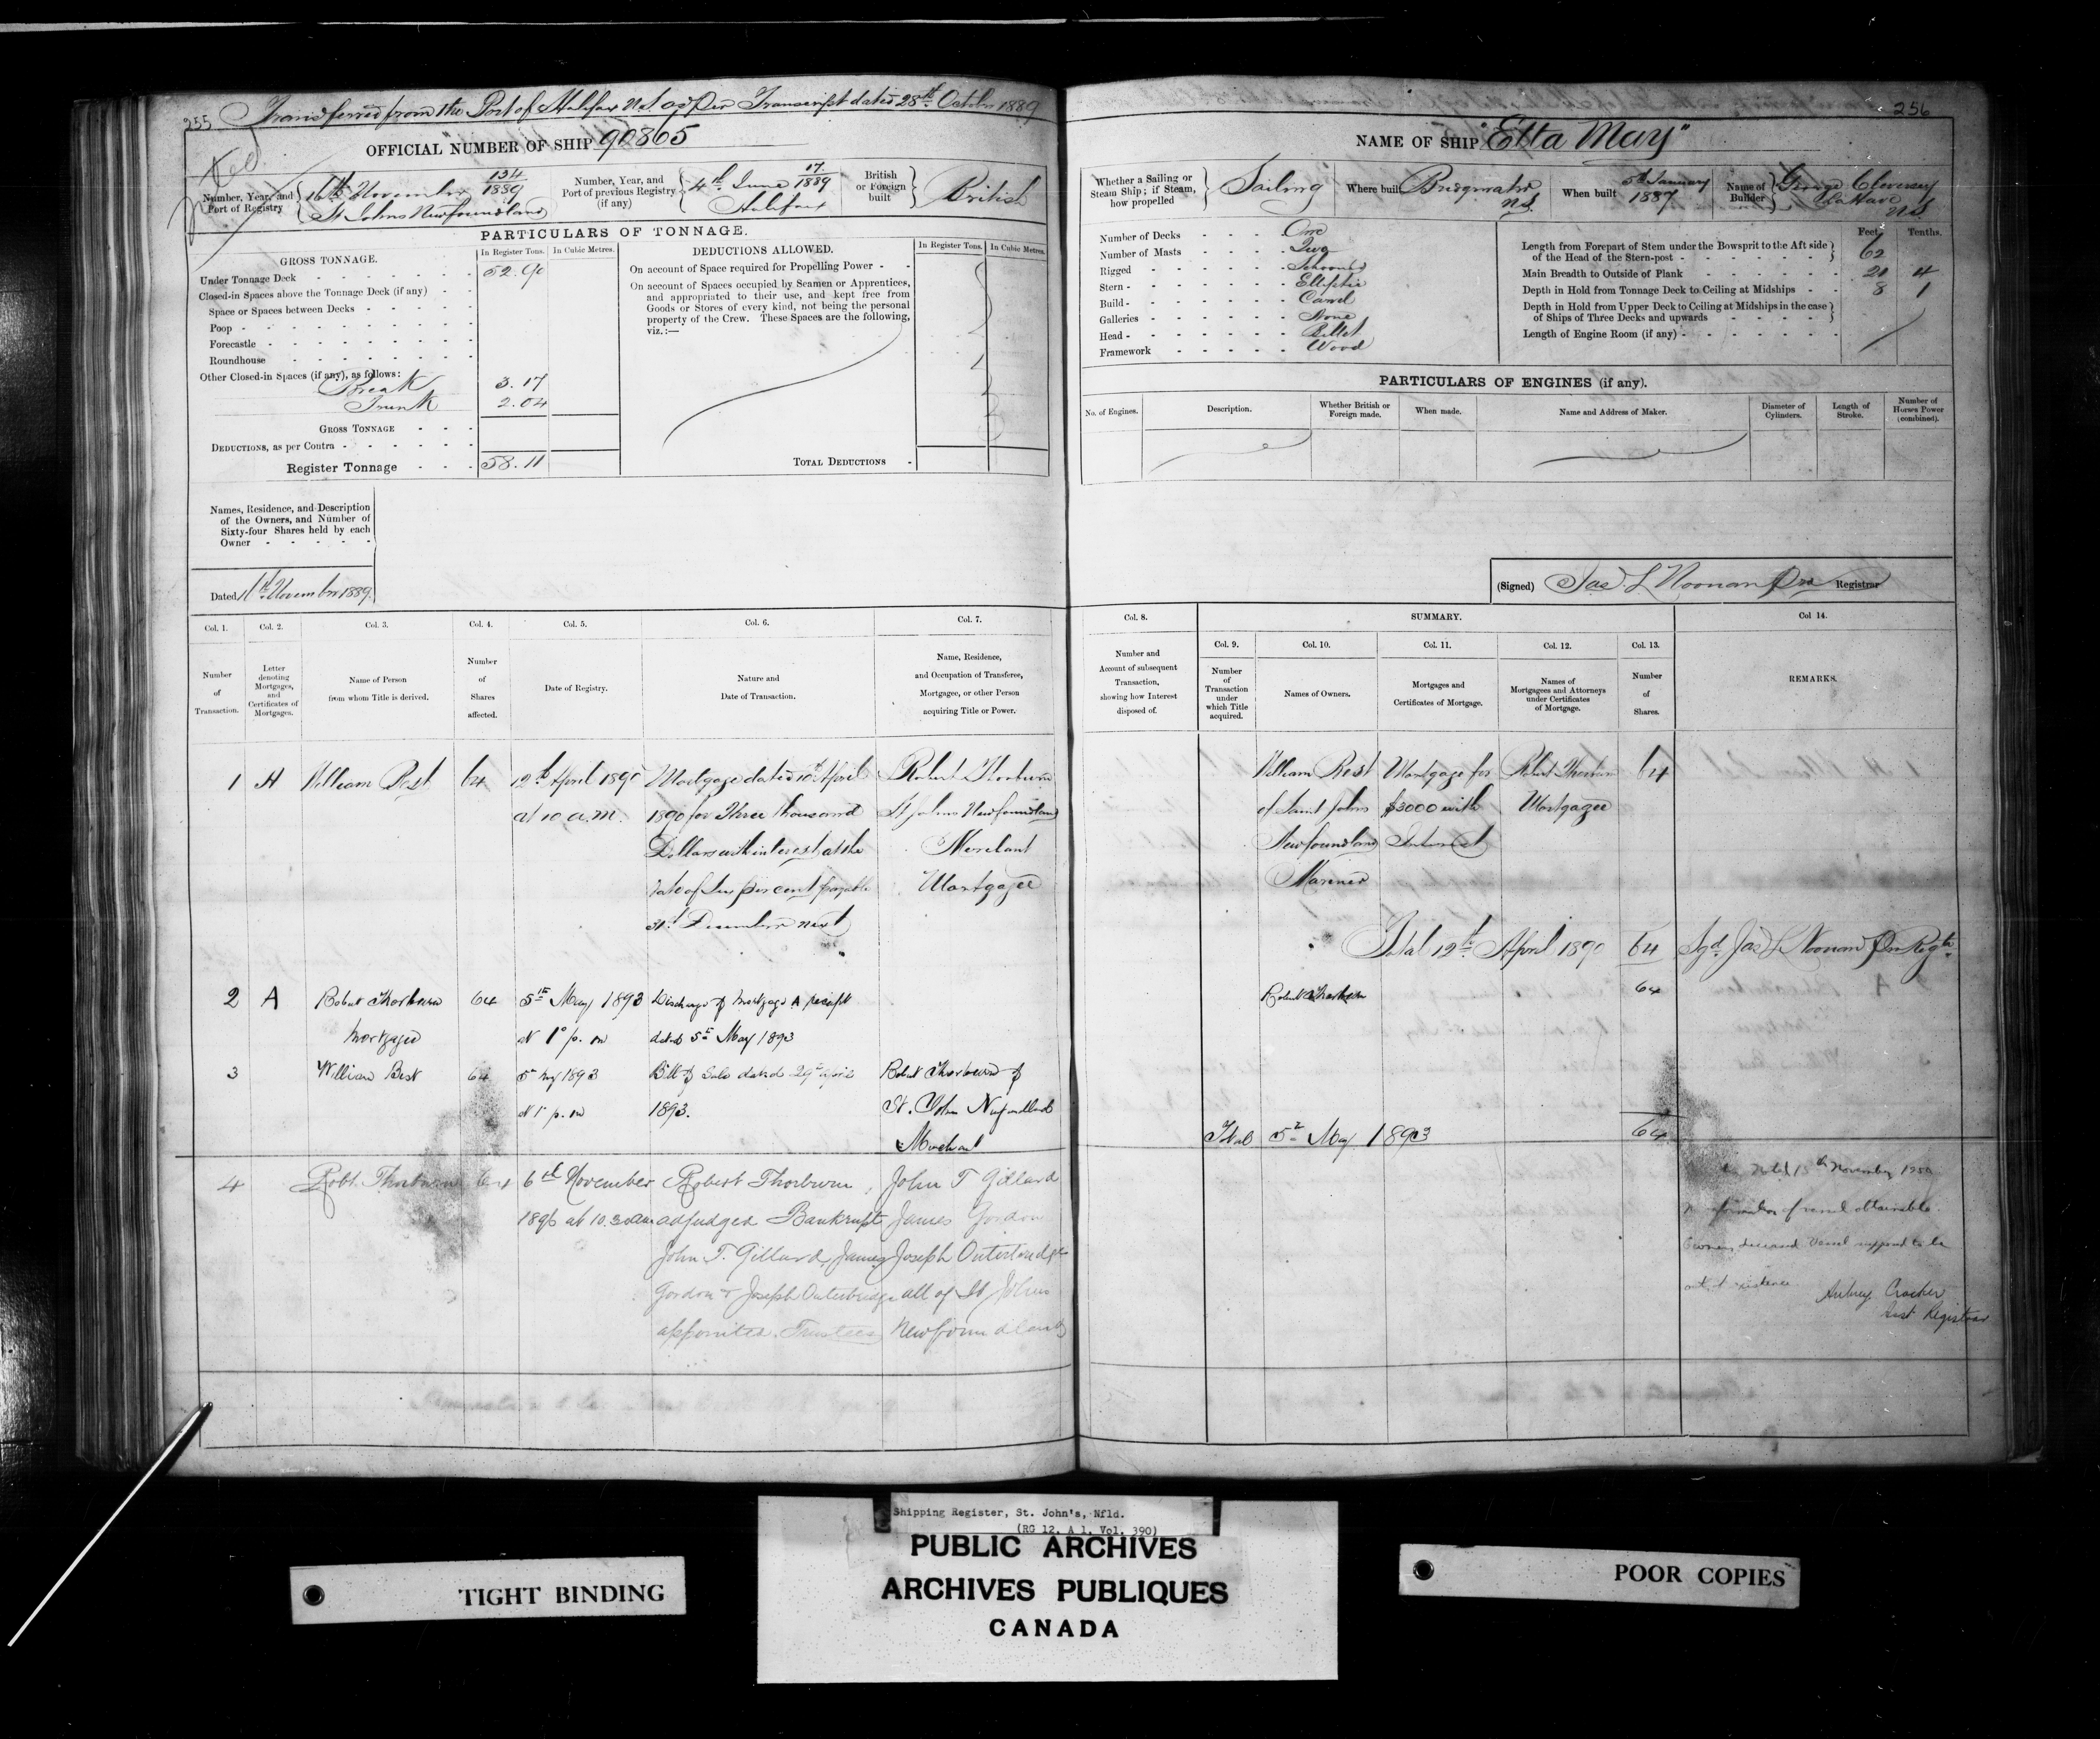 255 Transferred from the Port of Halifax N.S. as per Transcript dated 28th October 1889
OFFICIAL NUMBER OF SHIP 90865
Number, Year, and Port of Registry
16th November 134/1889
St Johns Newfoundland
Number, Year, and Port of previous Registry (if any)
4th June 17/1889
Halifax
British or Foreign built
British
PARTICULARS OF TONNAGE.
GROSS TONNAGE.
In Register Tons.
In Cubic Metres.
Under Tonnage Deck 52.90
Closed-in Spaces above the Tonnage Deck (if any)
Space or Spaces between Decks
Poop
Forecastle
Roundhouse
Other Closed-in Spaces (if any), as follows:
Break 3.17
Trunk 2.04
GROSS TONNAGE
DEDUCTIONS, as per Contra
Register Tonnage 58.11
DEDUCTIONS ALLOWED.
In Register Tons.
In Cubic Metres.
On account of Space required for Propelling Power
On account of Spaces occupied by Seamen or Apprentices,
and appropriated to their use, and kept free from
Goods or Stores of every kind, not being the personal
property of the Crew. These Spaces are the following,
viz.:—
TOTAL DEDUCTIONS
Names, Residence, and Description
of the Owners, and Number of
Sixty-four Shares held by each
Owner
Dated November 1889.
256
NAME OF SHIP "Etta May"
Whether a Sailing or Steam Ship; if Steam, how propelled
Sailing
Where built
Bridgwater
N.S.
When built
5th January
1887
Name of Builder
George Cleversey
La Have
N.S.
Number of Decks One
Number of Masts Two
Rigged Schooner
Stern Elliptic
Build Carvel
Galleries None
Head Billet
Framework Wood
Feet. Tenths.
Length from Forepart of Stem under the Bowsprit to the Aft side
of the Head of the Stern-post 62
Main Breadth to Outside of Plank 20 4
Depth in Hold from Tonnage Deck to Ceiling at Midships 8 1
Depth in Hold from Upper Deck to Ceiling at Midships in the case
of Ships of Three Decks and upwards
Length of Engine Room (if any)
PARTICULARS OF ENGINES (if any).
No. of Engines.
Description.
Whether British or Foreign made.
When made.
Name and Address of Maker.
Diameter of Cylinders.
Length of Stroke.
Number of Horses Power (combined).
(Signed) Jas. L Noonan Pro Registrar
Col. 1. Col. 2. Col. 3. Col. 4. Col. 5. Col. 6. Col. 7.
Number of Transaction.
Letter denoting Mortgages, and Certificates of Mortgages.
Name of Person from whom Title is derived.
Number of Shares affected.
Date of Registry.
Nature and Date of Transaction.
Name, Residence, and Occupation of Transferee, Mortgagee, or other Person acquiring Title or Power.
Col. 8.
SUMMARY.
Col 14.
Number and Account of subsequent Transaction, showing how Interest disposed of.
Col. 9. Col. 10. Col. 11. Col. 12. Col. 13.
Number of Transaction under which Title acquired.
Names of Owners.
Mortgages and Certificates of Mortgage.
Names of Mortgagees and Attorneys under Certificates of Mortgage.
Number of Shares.
REMARKS.
1 A William Best 64 12th April 1890 Mortgage dated 10th April Robert Thorburn
at 10 a.m. 1890 for Three thousand St Johns Newfoundland
Dollars with interest at the Merchant
rate of six per cent payable Mortgagee
31st December next
William Best Mortgage for Robert Thorburn 64
of Saint Johns $3000 with Mortgagee
Newfoundland Interest
Mariner
Total 12th April 1890 64 Sgd. Jas L Noonan Pro Regtr.
2 A Robert Thorburn 64 5th May 1893 Discharge of mortgage A receipt
Mortgagee at 1 p.m dated 5th May 1893
Robert Thorburn 64
3 William Best 64 5th May 1893 Bill of Sale dated 29th April Robert Thorburn of
at 1 p.m 1893. St. John Newfoundland
Merchant
Total 5th May 1893 64
4 Robt. Thorburn 64 6th November Robert Thorburn, John T Gillard
1896 at 10.30 am adjudged Bankrupt James Gordon
John T. Gillard, James Joseph Outerbridge
Gordon & Joseph Outerbridge all of St Johns
appointed Trustees Newfoundland
15th November 1950
information of vessel obtainable.
Owner deceased Vessel supposed to be
out of existence.
Aubrey Crocker
Asst Registrar
Shipping Register, St. John's, Nfld.
(RG 12, A 1, Vol. 390)
PUBLIC ARCHIVES
ARCHIVES PUBLIQUES
CANADA
TIGHT BINDING
POOR COPIES